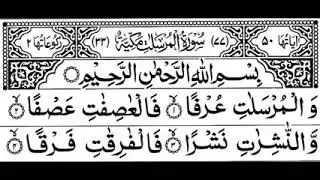 اٰیَاتُهَا ٥٠ (٧٧) سُوْرَةُ الْمُرْسَلٰتِ مَكِّیَّةٌ (٣٣) رُكُوْعَاتُهَا ٢
بِسْمِ اللّٰهِ الرَّحْمٰنِ الرَّحِیْمِ
وَ الْمُرْسَلٰتِ عُرْفًا ۙ١ فَالْعٰصِفٰتِ عَصْفًا ۙ٢
وَّ النّٰشِرٰتِ نَشْرًا ۙ٣ فَالْفٰرِقٰتِ فَرْقًا ۙ٤